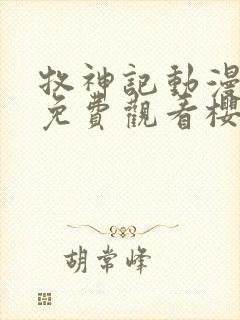 牧神記動漫
免費觀看櫻
胡常峰